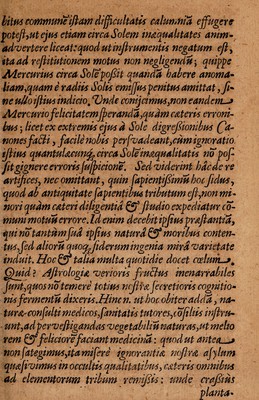 bitus communē istam difficultatis calumniā effugere
potest, ut ejus etiam circa Solem inæqualitates anim-
advertere liceat: quod ut instrumentis negatum est,
ita ad restitutionem motus non negligendū; quippe
Mercurius circa Solē possit quandā habere anoma-
liam, quam è radiis Solis emissus penitus amittat, si-
ne ullo istius indicio, Unde conijcimus, non eandem
Mercurio felicitatem sperandā, quàm cæteris erroni-
bus; licet ex extremis ejus à Sole digressionibus Ca-
nones facti, facilè nobis persvadeant, cùm ignoratio
istius quantulæcunq́, circa Solē inæqualitatis nō pos-
sit gignere erroris suspicionē. Sed viderint hâc de re
artifices, nec omittant, quin sapientissimū hoc sidus,
quod ab antiquitate sapientibus tributum est, non mi-
nori quàm cæteri diligentiâ & studio expediatur cō-
muni motuū errore. Id enim decebit ipsius præstantiā,
qui nō tantùm suâ ipsius naturâ & moribus conten-
tus, sed aliorū quoq́, siderum ingenia mirâ varietate
induit. Hoc & talia multa quotidie docet cœlum.
Quid? Astrologiæ verioris fructus inenarrabiles
sunt, quos nō temerè totius nostræ secretioris cognitio-
nis fermentū dixeris. Hinc n. ut hoc obiter addā, na-
turæ-consulti medicos, sanitatis tutores, cōsiliis instru-
unt, ad pervestigandas vegetabiliū naturas, ut melio
rem & feliciorē faciant medicinā: quod ut antea
non sategimus, ita miserè ignorantiæ nostræ asylum
quæsivimus in occultis qualitatibus, cæteris omnibus
ad elementorum tribum remissis: unde crassius
planta-